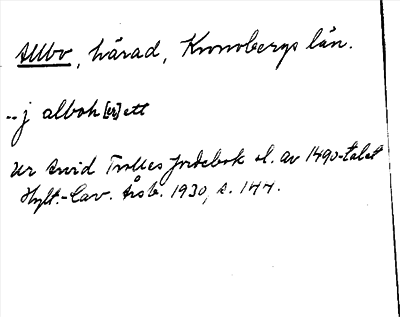 Allbo, härad, Kronobergs län.
-- j alboh[er]ett
Ur Arvid Trolles jordebok sl. av 1490-talet
Hylt.-Cav. Årsb. 1930, s. 144.